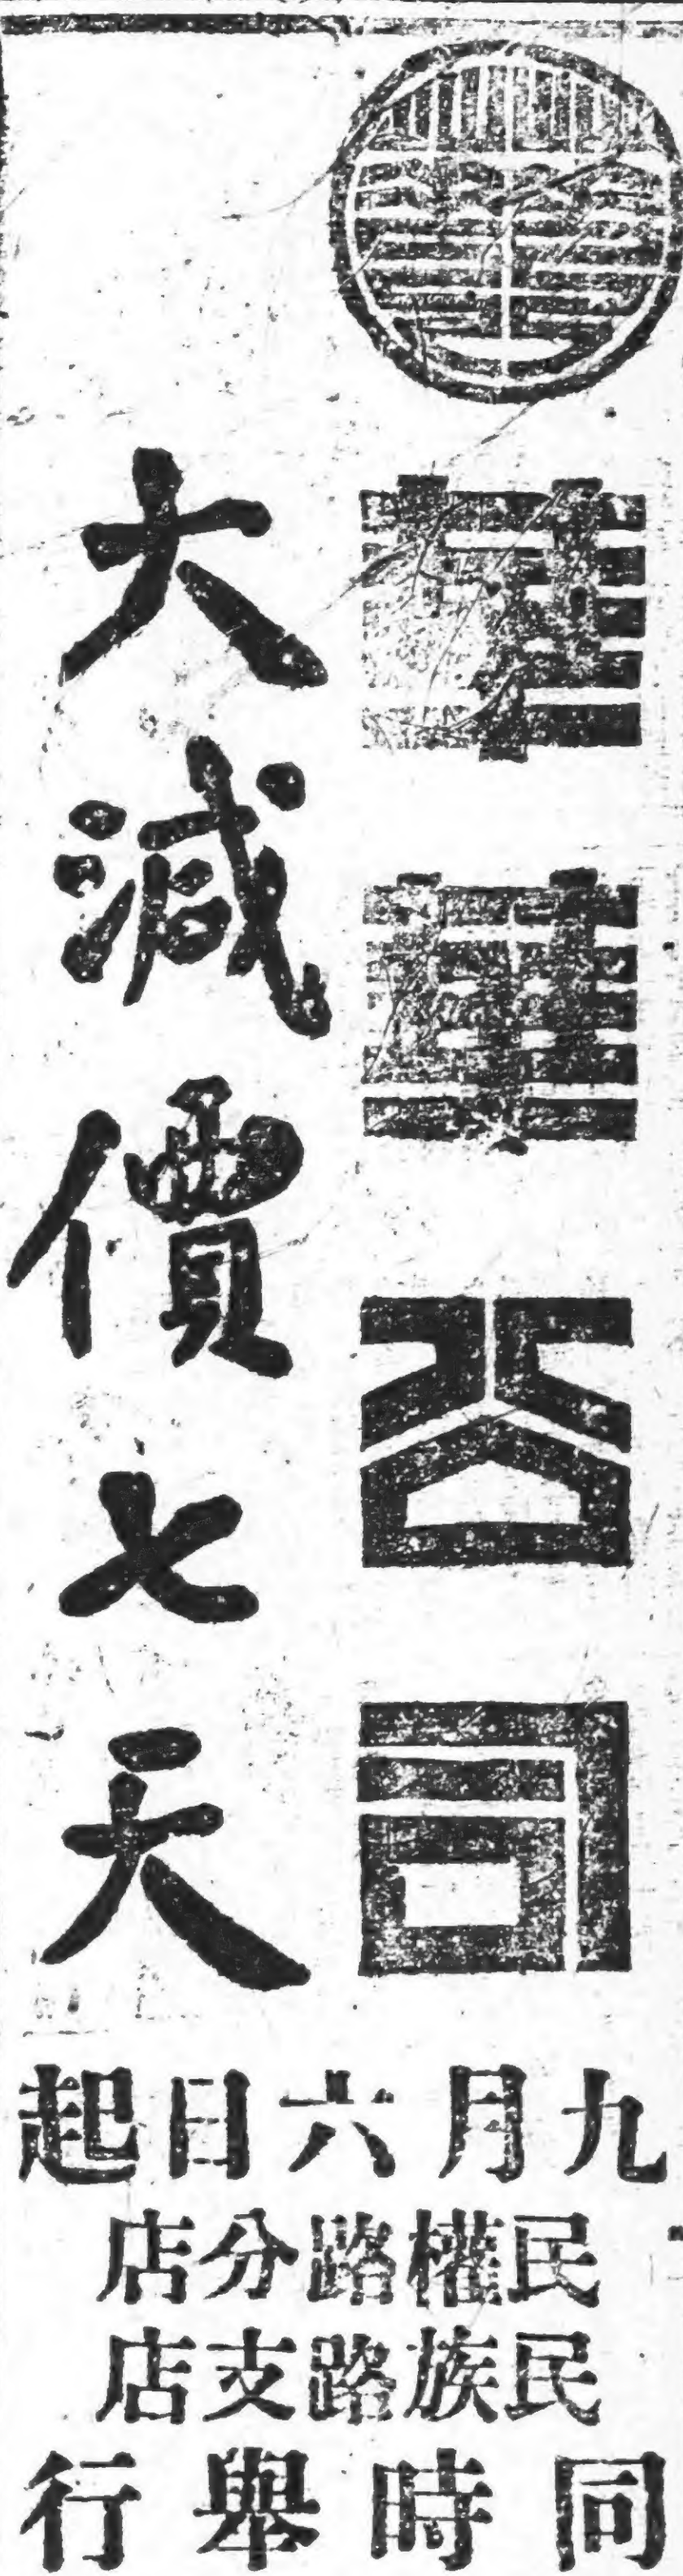 華華公司
大減價七天
九月六日起
民權路分店
民族路支店
同時舉行